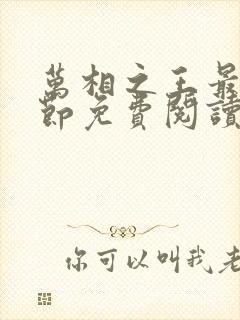 萬相之王最
節免費閱讀
你可以叫我老